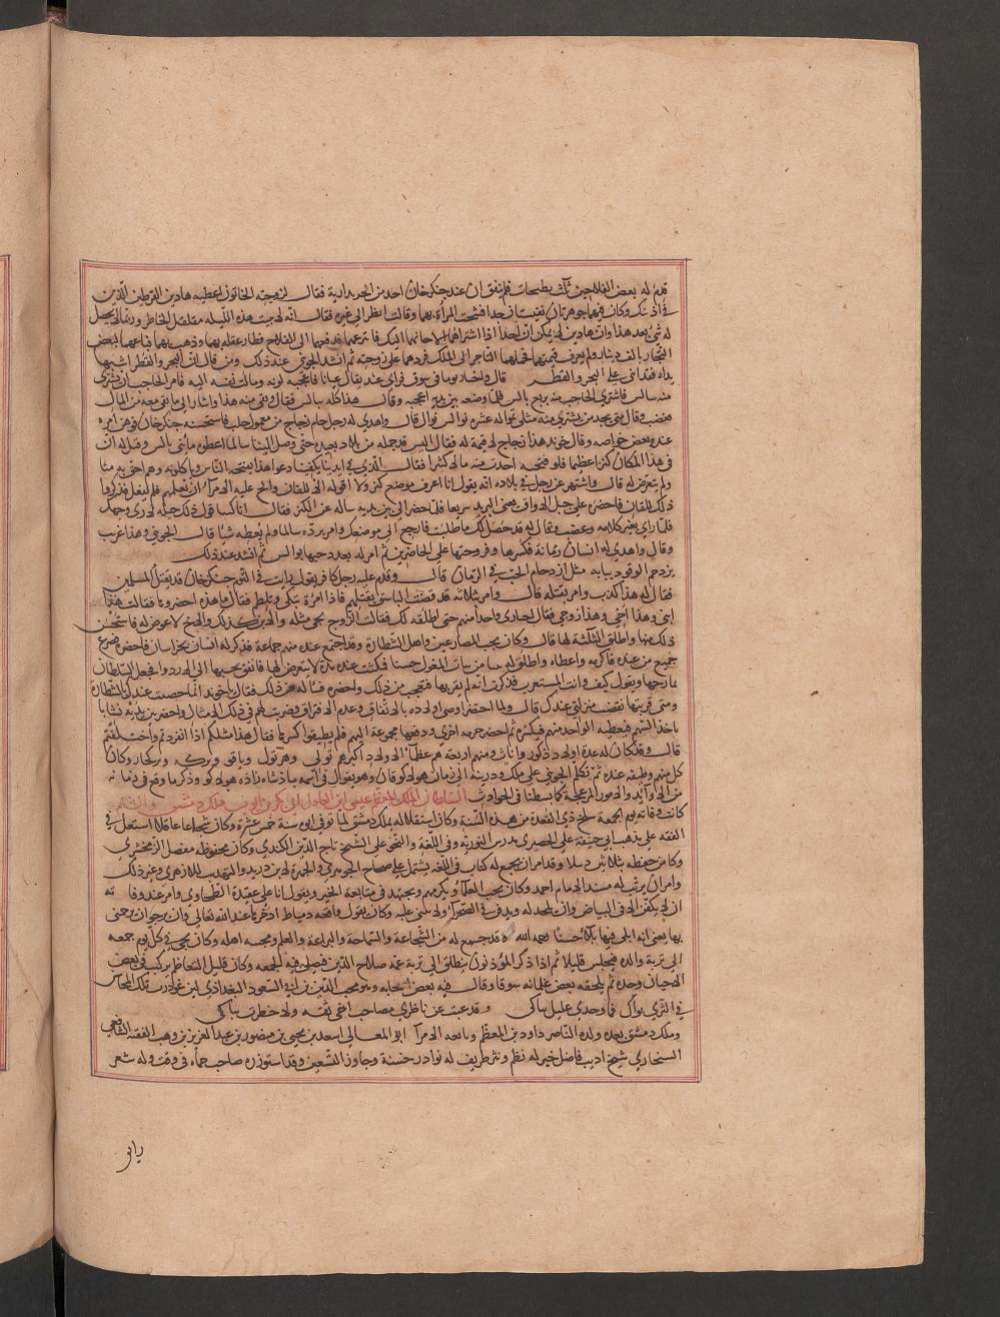 قدم له بعض الفلاحين ثلاث بطيخات فلم يتفق ان عند جنكزخان احد من الجريدارية فقال لزوجته الخاتون اعطيه هادين القرطين الذين
في اذنك وكان فيهما جوهرتان نفيستان جدا فشحت المرأة بهما وقالت انظره الى غد فقال انه يبيت هذه الليلة مقلقل الخاطر وربما لا يحصل
له شي بعد هذا وان هادين لا يمكن ان احدا اذا اشتراهما الا جا بهما اليك فانتزعهما فدفعهما الى الفلاح فطار عقله بهما وذهب بهما فباعهما لبعض
التجار بالف دينار ولم يعرف قيمتهما فحملهما التاجر الى الملك فردهما على زوجته ثم انشد الجويني عند ذلك ومن قال ان البحر والقطر اشبها
يداه فقد اثنى على البحر والقطر قال واجتاز يوما في سوق فراى عند بقال عنابا فاعجبه لونه ومالت نفسه اليه فامر الحاجب ان يشتري
منه ببالس فاشترى الحاجب منه بربع بالس فلما وضعه بين يديه اعجبه وقال هذا كله ببالس فقال وبقي منه هذا واشار الى ما بقي معه من المال
فغضب وقال متى يجد من يشتري منه مثلي تموا له عشرة بوالس قال واهدى له رجل جام زجاج من معمول حلب فاستحسنه جنكزخان فوهن امره
عنده بعض خواصه وقال خوند هذا زجاج لا قيمة له فقال اليس قد حمله من بلاد بعيدة حتى وصل الينا سالما اعطوه مائتي بالس وقيل له ان
في هذا المكان كنزا عظيما فلو فتحته اخذت منه مالا كثيرا فقال الذي في ايدينا يكفينا دعوا هذا يفتحه الناس وياكلونه وهم احق به منا
ولم يتعرض له قال واشتهر عن رجل في بلاده انه يقول انا اعرف موضع كنز ولا اقوله الا للقان والح عليه الامراء ان يعلمهم فلم يفعل فذكروا
ذلك للقان فاحضره على خيل الاولاق يعني البريد سريعا فلما حضر الى بين يديه ساله عن الكنز فقال انما كنت اقول ذلك حيلة لارى وجهك
فلما راى تغير كلامه وغضب وقال له قد حصل لك ما طلبت فارجع الى موضعك وامر برده سالما ولم يعطه شيئا قال الجويني وهذا غريب
وقال واهدى له انسان رمانة فكسرها وفرق حبها على الحاضرين ثم امر له بعدد حبها بوالس ثم انشد عند ذلك
يزدحم الوفود ببابه مثل ازدحام الحب في الرمان قال وقدم عليه رجل كافر يقول رايت في النوم جنكزخان قد يقتل المسلمين
فقال له هذا كذب وامر بقتله قال وامر بثلاثة قد قضت الياسق بقتلهم فاذا امراة تبكي وتلطم فقال ما هذه احضروها فقالت هذا
ابني وهذا اخي وهذا زوجي فقال اختاري واحدا منهم حتى اطلقه لك فقالت الزوج يجي مثله والابن كذلك والاخ لا عوض له فاستحسن
ذلك منها واطلق الثلثة لها قال وكان يحب المصارعين واهل الشطارة وقد اجتمع عنده منهم جماعة فذكر له انسان بخراسان فاحضره فصرع
جميع من عنده فاكرمه واعطاه واطلق له بنتا من بنات المغول حسنا فمكثت عنده مدة لا يتعرض لها فاتفق مجيبها الى الاردوا فجعل السلطان
يمازحها ويقول كيف وانت المستعرب فذكرت انه لم يقربها فتعجب من ذلك واحضره فساله عن ذلك فقال يا خوند انما حضيت عندك بالشطارة
ومتى قربتها نقصت منزلتي عندك قال ولما احتضر اوصى اولاده بالاتفاق وعدم الافتراق وضرب لهم في ذلك الامثال واحضر بين يديه نشابا
ياخذ السهم فيعطيه الواحد منهم فيكسره ثم احضر حزمة اخرى ودفعها مجموعة اليهم فلم يطيقوا كسرها فقال هذا مثلكم اذا انفردتم واختلفتم
قال وقد كان له عدة اولاد ذكور واناث ومنهم اربعة هم عظماء الاولاد اكبرهم تولى وهر تول وباتو وبركه وبركجار وكان
كل منهم وظيفة عنده ثم تكلم الجويني على ملك ودريته الى زمان هولاكو قان وهو يقول في اسمه بادشاه زاده هولاكو وذكر ما وقع في زمانه
من الاوابد والامور المزعجة كما بسطنا في الحوادث السلطان الملك المعظم عيسى ابن العادل ابى بكر بن ايوب ملك دمشق والشام
كانت وفاته يوم الجمعة سلخ ذي القعدة من هذه السنة وكان استقلاله بملك دمشق لما توفي ابوه سنة خمس عشرة وكان شجاعا عاقلا اشتغل في
الفقه على مذهب ابي حنيفة على الحصيري مدرس النورية وفي اللغة والنحو على الشيخ تاج الدين الكندي وكان محفوظه مفصل الزمخشري
وكان من حفظه بثلاثين دينارا وقد امر ان يجمع له كتاب في اللغة يشتمل على صحاح الجوهري والجمهرة لابن دريد والتهذيب للازهري وغير ذلك
وامر ان يرتب له مسند الامام احمد وكان يحب العلماء ويكرمهم ويجتهد في متابعة الخير ويقول انا على عقيدة الطحاوي وامر عند وفاته
ان لا يكفن الا في البياض وان يلحد له ويدفن في الصحراء ولا يبنى عليه وكان يقول واقعة دمياط ادخرتها عند الله تعالى وان يرجوا ان يرحمني
بها يعني انه ابلى فيها بلاء حسنا رحمه الله وقد جمع له من الشجاعة والسماحة والبراعة والعلم ومحبة اهله وكان يجي في كل يوم جمعة
الى تربة والده فيجلس قليلا ثم اذا ذكر المؤذنون ينطلق الى تربة عمه صلاح الدين فيصلي فيه الجمعة وكان قليل التعاظم يركب في بعض
الاحيان وحده ثم يلحقه بعض غلمانه سوقا وقال فيه بعض اصحابه وهو محب الدين بن ابي السعود البغدادي لين غودرت تلك المحاسن
في الثرى بوال فما وجدي عليك ببالي وقد غبت عن ناظري مصاحب اخي ثقة ولا خطرت ببالي
وملك دمشق بعده ولده الناصر داود بن المعظم وبايعه الامراء ابو المعالي اسعد بن يحيى بن منصور بن عبد العزيز بن وهب الفقيه الشافعي
السنجاري شيخ اديب فاضل خير له نظم ونثر ظريف له نوادر حسنة وجاوز التسعين وقد استوزره صاحب حماه في وقت وله شعر
رايق